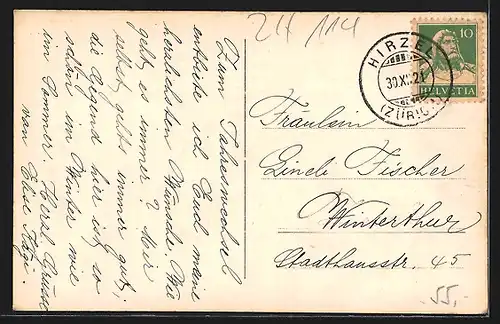 ZH 114
Zum Jahreswechsel
entbiete ich Euch meine
herzlichsten Wünsche. Wie
geht es immer? Mir
selbst geht's immer gut;
die Gegend hier ist so
schön im Winter wie
im Sommer. Herzl. Grüsse
von Elise
10
HELVETIA
HIRZEL
30.XII.21
(ZÜRICH)
Fräulein
Lineli Fischer
Winterthur
Stadthausstr. 45
-55,-